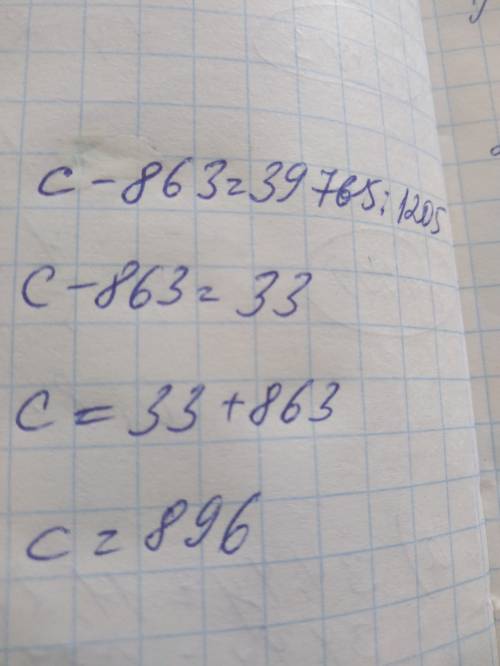 c - 863 = 39765 : 1205
c - 863 = 33
c = 33 + 863
c = 896